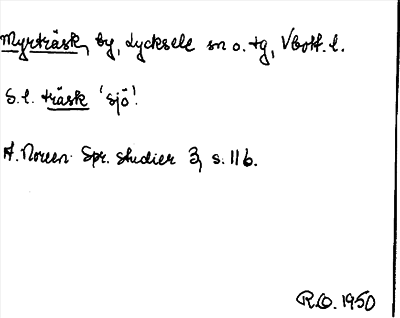 Myrträsk, by, Lycksele sn o. tg, Vbott. l.
S.l. träsk 'sjö'.
A. Noreen Spr. studier 3, s. 116.
R.O. 1950